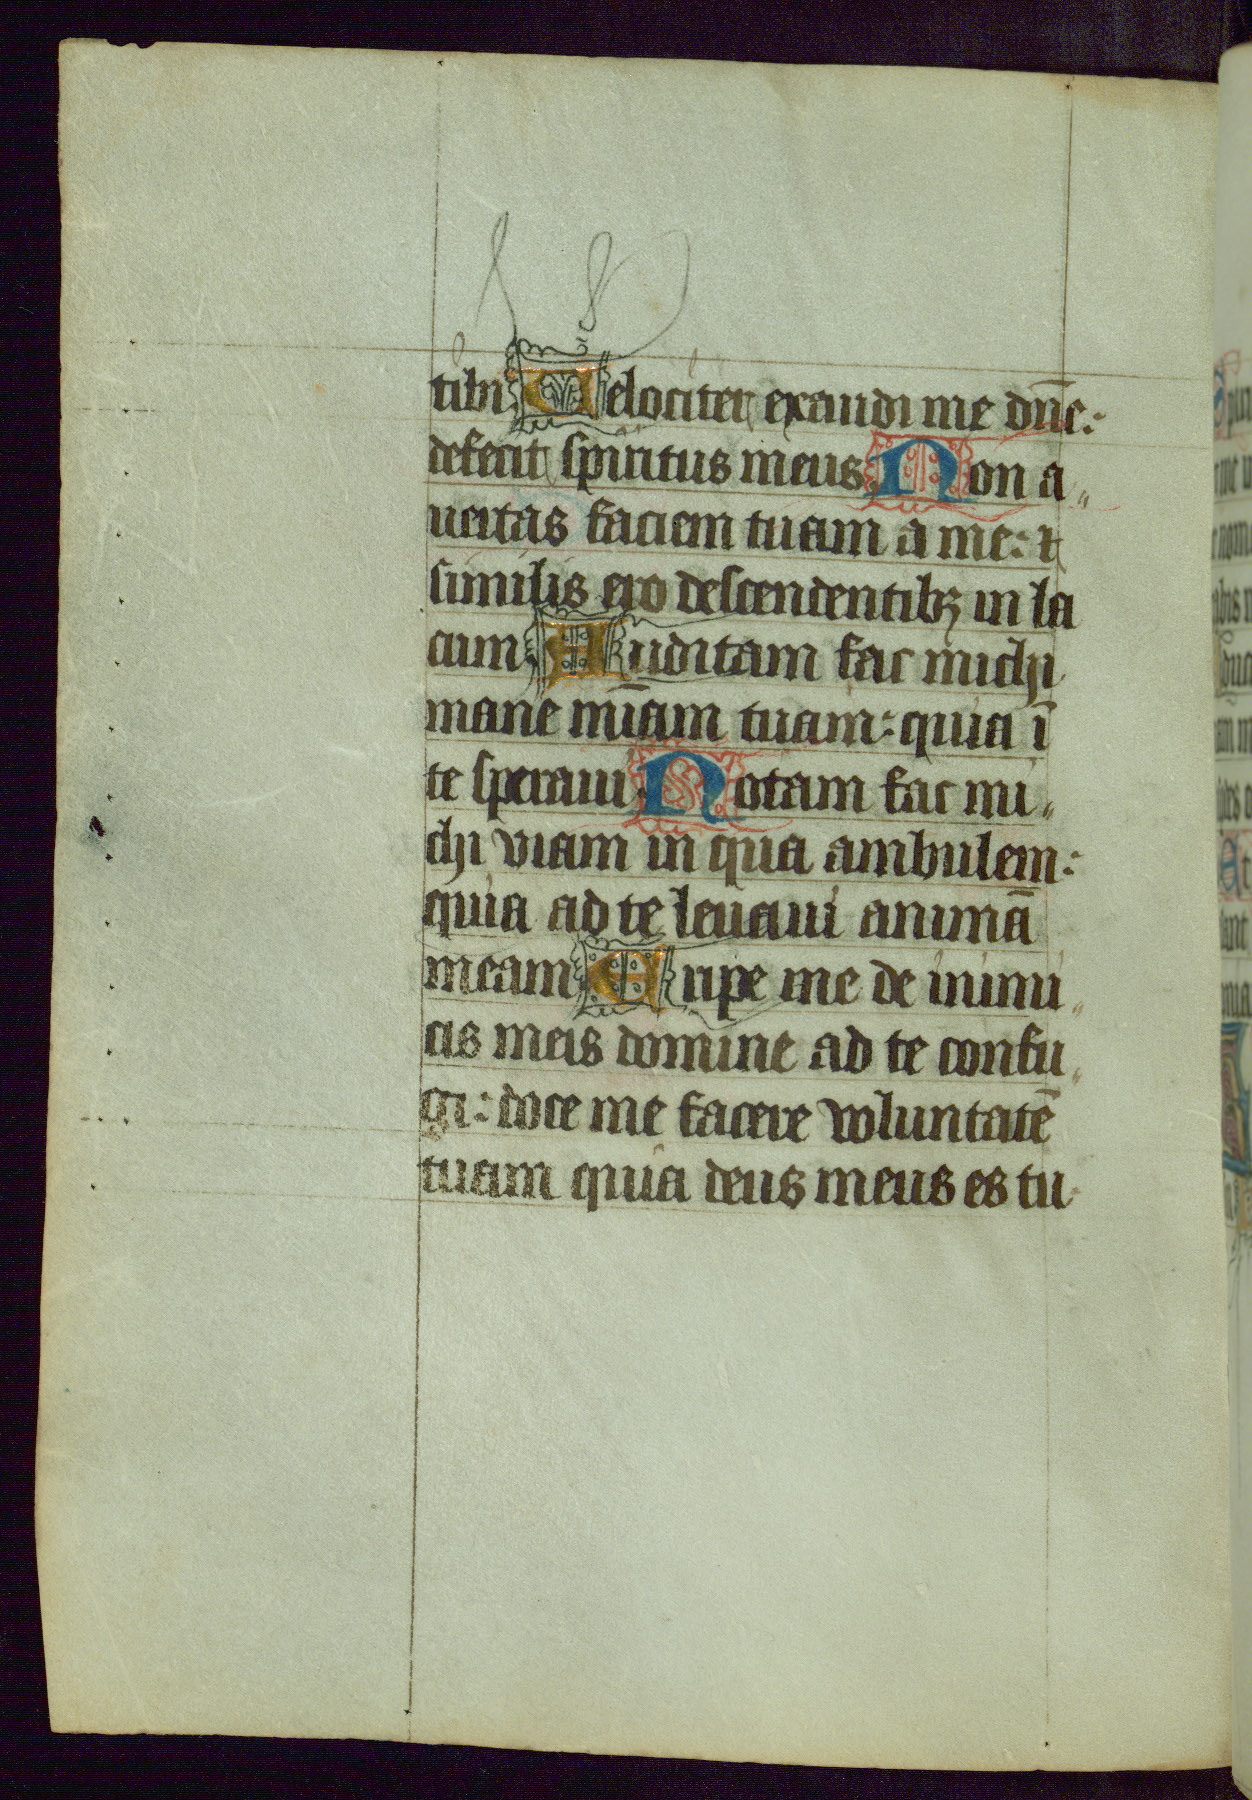 tibi Uelociter exaudi me dn̄e:
defecit spiritus meus Non a„
uertas faciem tuam a me: ⁊
similis ero descendentibꝫ in la
cum Auditam fac michi
mane mīam tuam: quia ī
te speraui Notam fac mi„
chi viam in qua ambulem:
quia ad te leuaui animā
meam Eripe me de inimi„
cis meis domine ad te confu„
gi: doce me facere voluntatē
tuam quia deus meus es tu